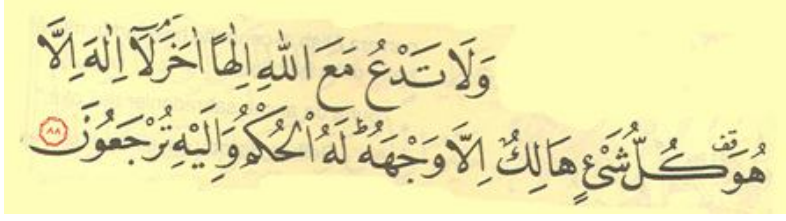 وَلَا تَدْعُ مَعَ اللّٰهِ اِلٰهًا اٰخَرَ ۘ لَاۤ اِلٰهَ اِلَّا
هُوَ ۟قف كُلُّ شَیْءٍ هَالِكٌ اِلَّا وَجْهَهٗ ؕ لَهُ الْحُكْمُ وَاِلَیْهِ تُرْجَعُوْنَ ۝۸۸